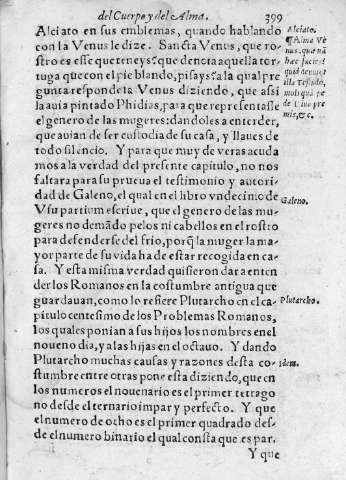 del Cuerpo y del Alma. 399
Alciato en sus emblemas, quando hablando
con la Venus le dize. Sancta Venus, que ro-
stro es esse que teneys? que denota aquella tor-
tuga que con el pie blando, pisays? a la qual pre
gunta responde la Venus diziendo, que assi
la auia pintado Phidias, para que representasse
el genero de las mugeres: dandoles a enteder,
que auian de ser custodia de su casa, y llaues de
todo silencio. Y para que muy de veras acuda
mos a la verdad del presente capitulo, no nos
faltara para su prueua el testimonio y autori-
dad de Galeno, el qual en el libro vndecimo de
Vsu partium escriue, que el genero de las mu-
geres no demãdo pelos ni cabellos en el rostro
para defenderse del frio, porq̃ la muger la ma
yor parte de su vida ha de estar recogida en ca-
sa. Y esta misma verdad quisieron dar a enten
der los Romanos en la costumbre antigua que
guardauan, como lo refiere Plutarcho en el ca-
pitulo centesimo de los Problemas Romanos,
los quales ponian a sus hijos los nombres en el
noueno dia, y a las hijas en el octauo. Y dando
Plutarcho muchas causas y razones desta co-
stumbre entre otras pone esta diziendo, que en
los numeros el nouenario es el primer tetrago
no desde el ternario impar y perfecto. Y que
el numero de ocho es el primer quadrado des-
de el numero binario el qual consta que es par.
Y que
Alciato.
¶Alma Ve
nus. quæ nã
hæc facies?
quid
illa Testudo,
molli quã pe
de
mis, &c.
Galeno.
Plutarcho.
Idem.